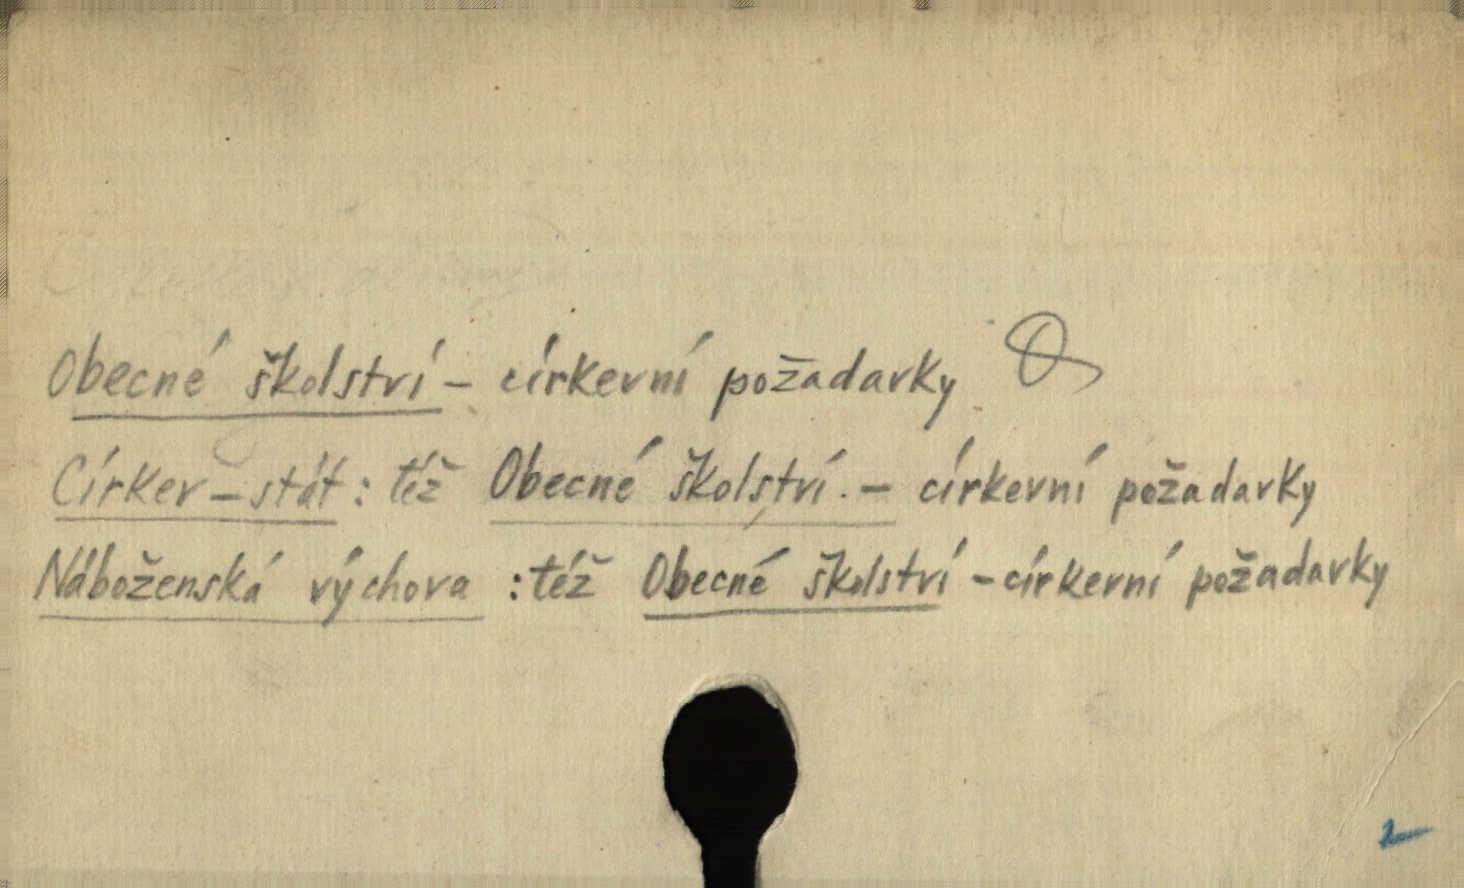 Obecné školství - církevní požadavky
Církev - stát : též Obecné školství. - církevní požadavky
Náboženská výchova : též Obecné školství - církevní požadavky